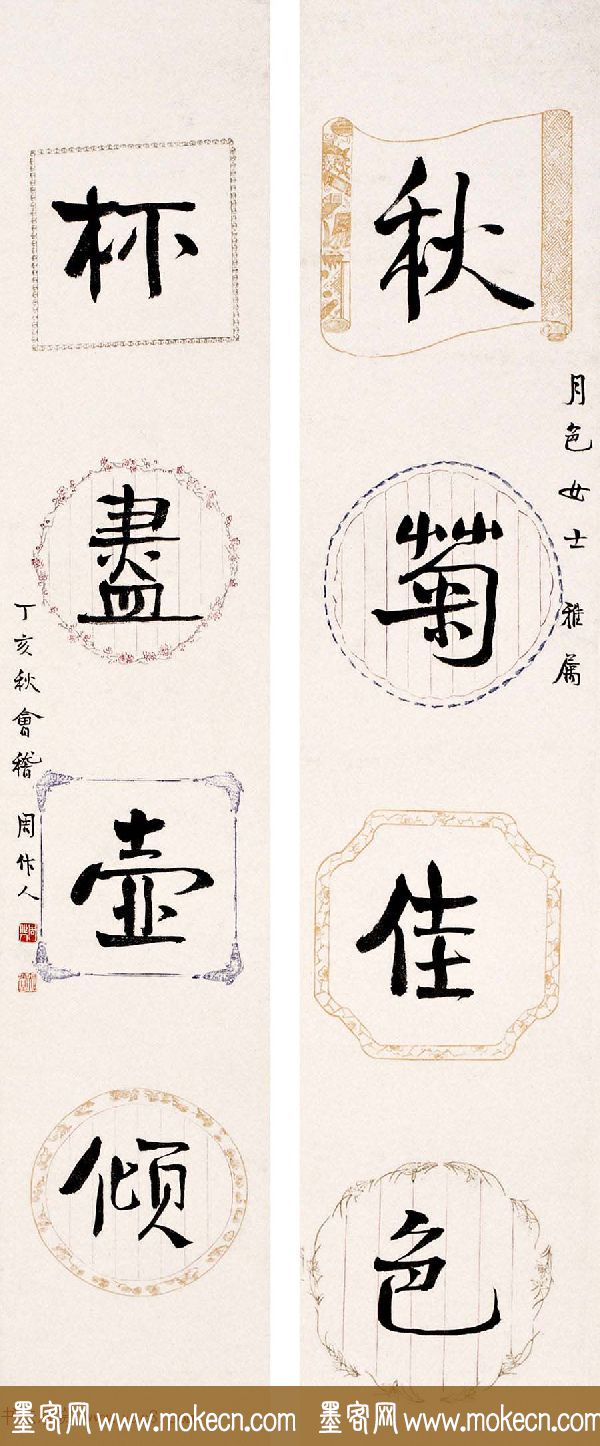 秋菊佳色
月色女士 雅属
杯盡壺傾
丁亥秋會稽 周作人
墨客网www.mokecn.com 墨客网www.mokecn.com